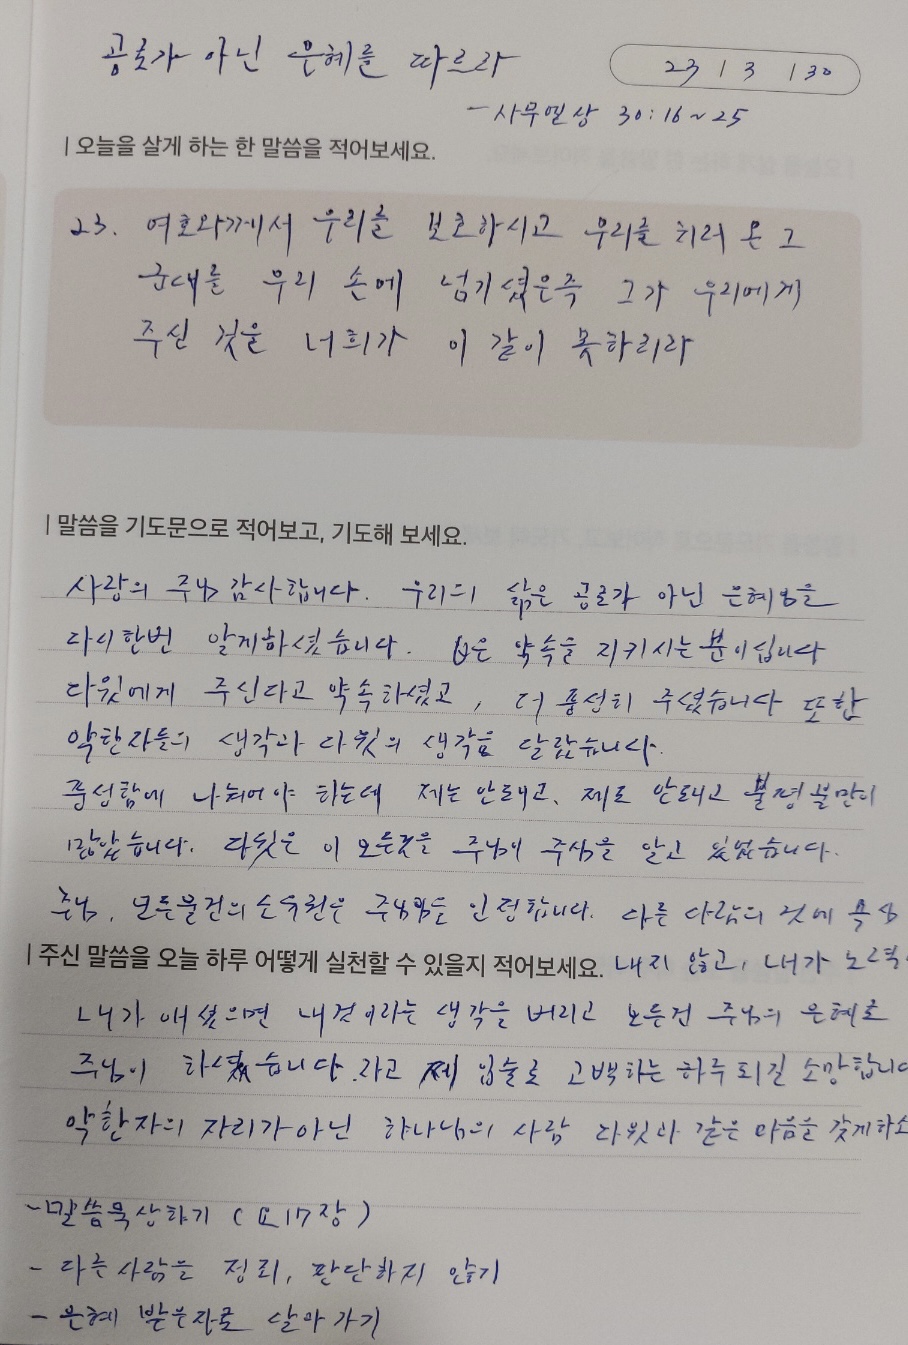 공로가 아닌 은혜를 따르라
23 / 3 / 30
- 사무엘상 30:16~25
오늘을 살게 하는 한 말씀을 적어보세요.
23. 여호와께서 우리를 보호하시고 우리를 치러 온 그
군대를 우리 손에 넘기셨은즉 그가 우리에게
주신 것을 너희가 이 같이 못하리라
말씀을 기도문으로 적어보고, 기도해 보세요.
사랑의 주님 감사합니다. 우리의 삶은 공로가 아닌 은혜임을
다시한번 알게하셨습니다. 은 약속을 지키시는 분이십니다
다윗에게 주신다고 약속하셨고, 더 풍성히 주셨습니다 또한
악한자들의 생각과 다윗의 생각은 달랐습니다.
풍성함에 나눠어야 하는데 안되고, 안되고 불평불만이
많았습니다. 다윗은 이 모든것을 주님이 주심을 알고 있었습니다.
주님, 모든물건의 소유권은 주님임을 인정합니다. 다른 사람의 것에 욕심
주신 말씀을 오늘 하루 어떻게 실천할 수 있을지 적어보세요. 내지 않고, 내가 노력
내가 애썼으면 내것이라는 생각을 버리고 모든건 주님의 은혜로
주님이 하셨습니다.라고 제 입술로 고백하는 하루 되길 소망합니다
악한자의 자리가아닌 하나님의 사람 다윗과 같은 마음을 갖게하소
- 말씀묵상하기 (요17장)
- 다른사람을 정죄, 판단하지 않기
- 은혜 받은자로 살아가기